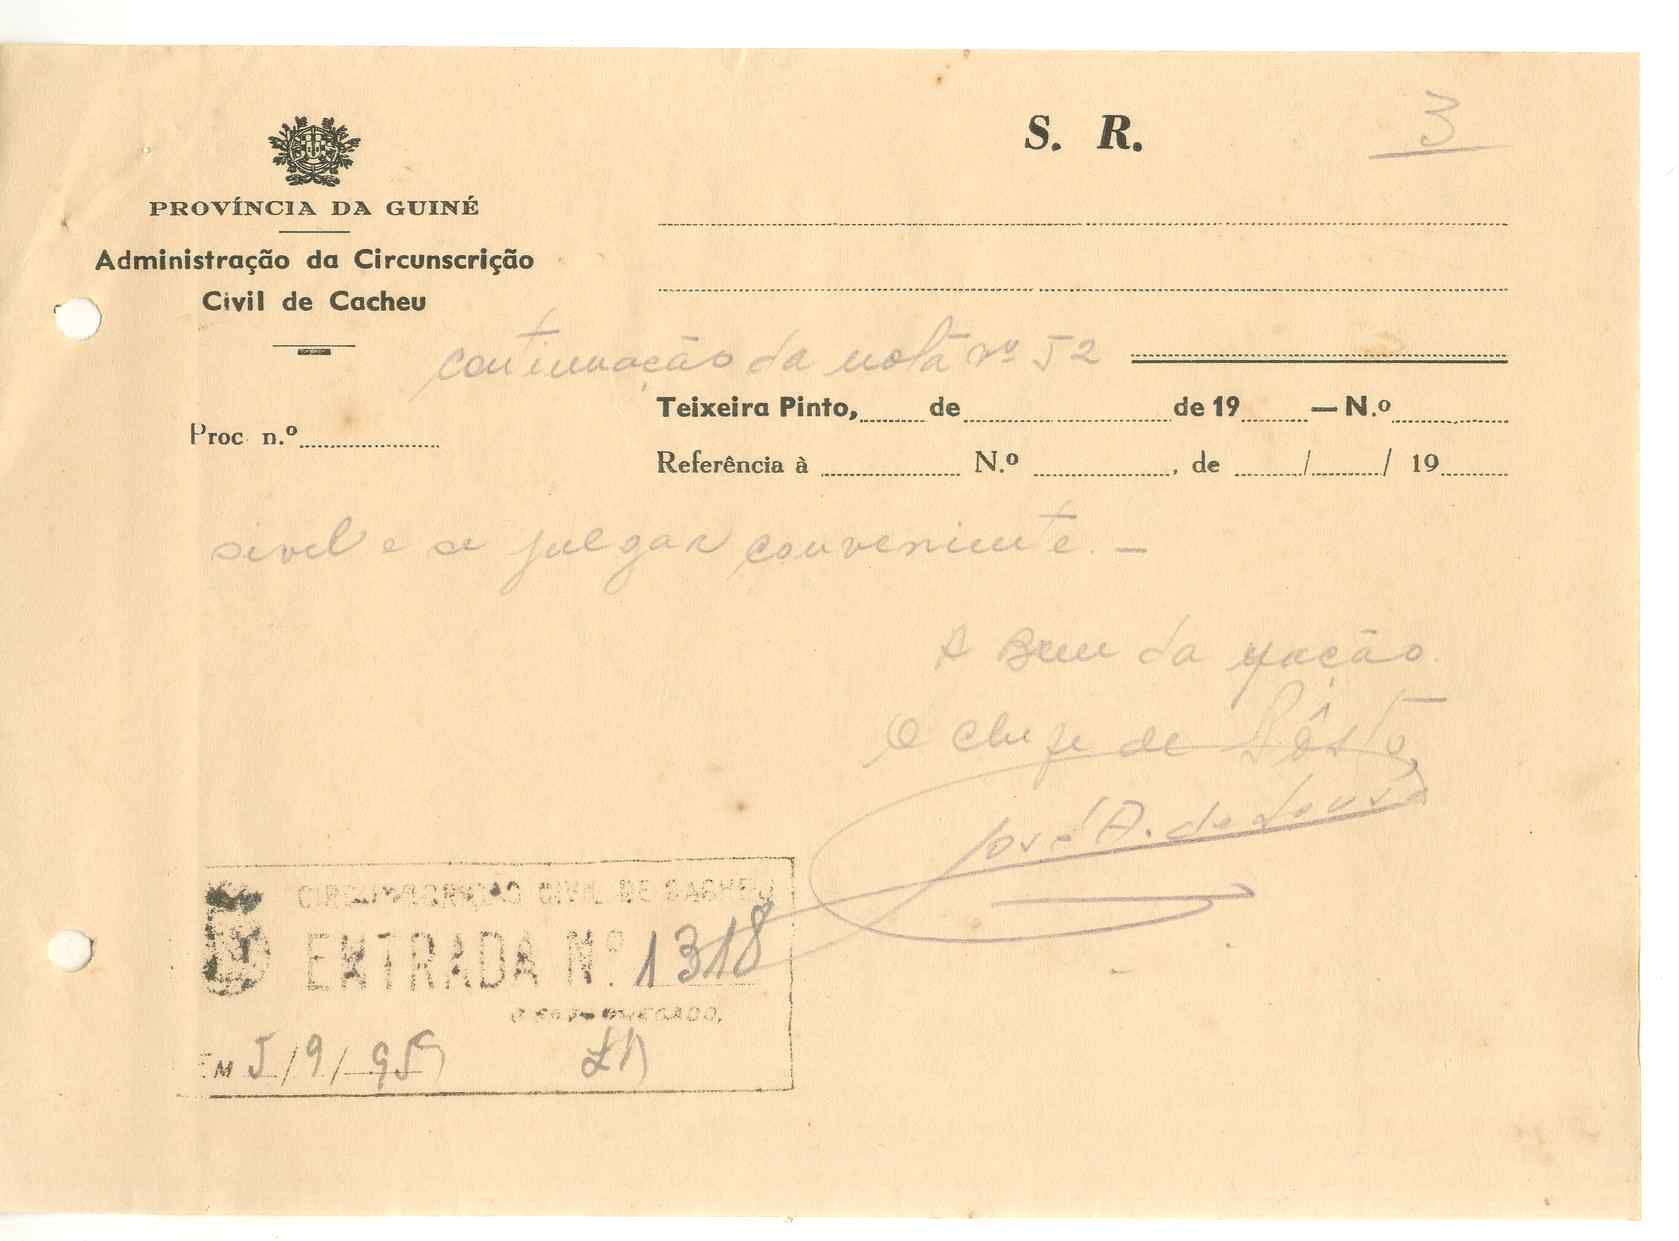 S. R.
3
PROVÍNCIA DA GUINÉ
Administração da Circunscrição
Civil de Cacheu
continuação da nota nº 52
Teixeira Pinto, de de 19 — N.º
Proc n.º
Referência à N.º , de / / 19
sivel e se julgar conveniente. —
A Bem da Nação.
O Chefe de Pôsto,
José A. de Sousa
CIRCUNSCRIÇÃO CIVIL DE CACHEU
ENTRADA N.º 1318
O ENCARREGADO,
EM 5/9/959